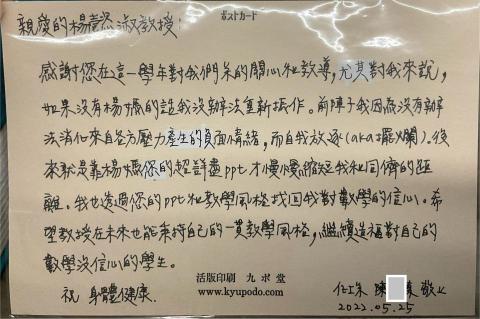 ポストカード
親愛的楊懿淑教授
感謝您在這一學年對我們系的關心和教導，尤其對我來說，
如果沒有楊媽的話我沒辦法重新振作。前陣子我因為沒有辦
法消化來自各方壓力產生的負面情緒，而自我放逐(aka擺爛)。後
來就是靠楊媽您的超詳盡ppt才慢慢縮短我和同儕的距
離。我也透過您的ppt和教學風格找回我對數學的信心。希
望教授在未來也能秉持自己的一貫教學風格，繼續造福對自己的
數學沒信心的學生。
祝 身體健康.
活版印刷 九ポ堂
www.kyupodo.com
陳 敬上
2022.05.25